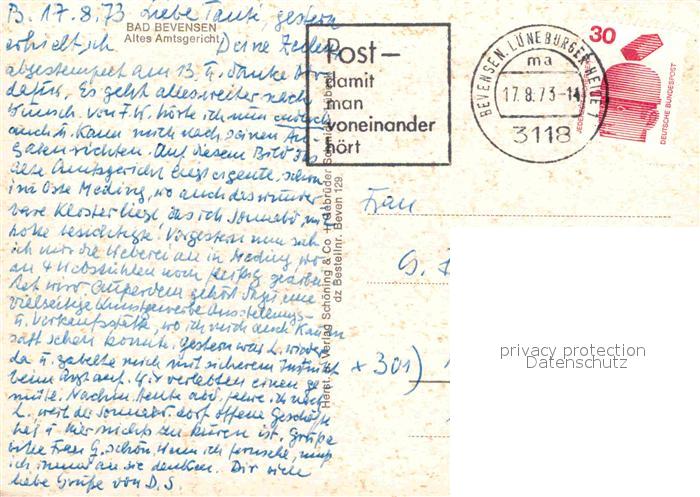 B. 17.8.73 Liebe Tante, gestern
erhielt ich Deine Zeilen
BAD BEVENSEN
Altes Amtsgericht
abgestempelt am 13. u. danke Dir
dafür. Es geht alles weiter nach
Wunsch. Von F.W. hörte ich nun endlich
auch u. kann mich nach seinen An-
gaben richten. Auf diesem Bild das
alte Amtsgericht liegt eigentl. schon
in Meding, wo auch das wunder-
bare Kloster liegt, das ich Sonnabd. mit
besichtigte. Vorgestern nun sah
ich mir die Weberei an in Meding, wo
an 4 Webstühlen noch fleißig gearbei-
tet wird. Außerdem gehört dazu eine
vielseitige Kunstgewerbe Ausstellungs-
u. Verkaufsstätte, wo ich mich auch
satt sehen konnte. Gestern war L. wieder
da u. gabelte mich mit sicherem Instinkt
beim Arzt auf. Wir verlebten einen
Nachm. heute abd. fahre ich nach
L. weil der Sonnab. dort offene Geschäfte
hat u. hier nichts zu kuren ist. Grüße
bitte Frau G. schön. Wenn ich
ich immer an sie denken. Dir viele
liebe Grüße von D. S.
Post –
damit
man
voneinander
hört
BEVENSEN, LÜNEBURGER HEIDE 1
ma
17.8.73-14
3118
30
DEUTSCHE BUNDESPOST
Herst. u. Verlag Schöning & Co + Gebrüder Schmidt, Lübeck
dz Bestellnr. Beven 129
Frau
G.
x 301)
privacy protection
Datenschutz